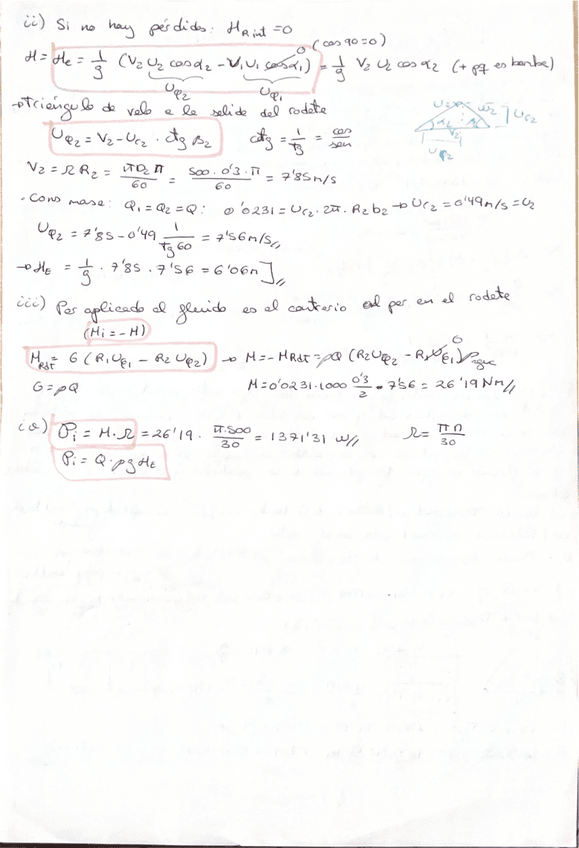 ii) Si no hay pérdidas: H_R int = 0
H = H_E = 1/g (V2 U2 cos α2 - V1 U1 cos α1) = 1/g V2 U2 cos α2 (+ pq es bomba)
0 (cos 90 = 0)
Uφ2 Uφ1
→ triángulo de velo a la salida del rodete
Uφ2 = V2 - Uc2 · ctg β2 ctg = 1/tg = cos/sen
U2 ω2 Uc2
α2 β2
V2
Uφ2
V2 = Ω R2 = n D2 π/60 = 500 · 0'3 · π/60 = 7'85 m/s
· Cons masa: Q1 = Q2 = Q: 0'0231 = Uc2 · 2π · R2 b2 → Uc2 = 0'49 m/s = U2
Uφ2 = 7'85 - 0'49 1/tg 60 = 7'56 m/s //
→ HE = 1/g · 7'85 · 7'56 = 6'06 m] //
iii) Par aplicado al fluido es al contrario al par en el rodete
(Mi = -M)
M_Rdt = G (R1 Uφ1 - R2 Uφ2) → M = -M_Rdt = ρQ (R2 Uφ2 - R1 Uφ1) ρagua
0
G = ρQ M = 0'0231 · 1000 0'3/2 · 7'56 = 26'19 Nm //
iv) Pi = M · Ω = 26'19 · π·500/30 = 1371'31 W // Ω = πn/30
Pi = Q · ρg HE